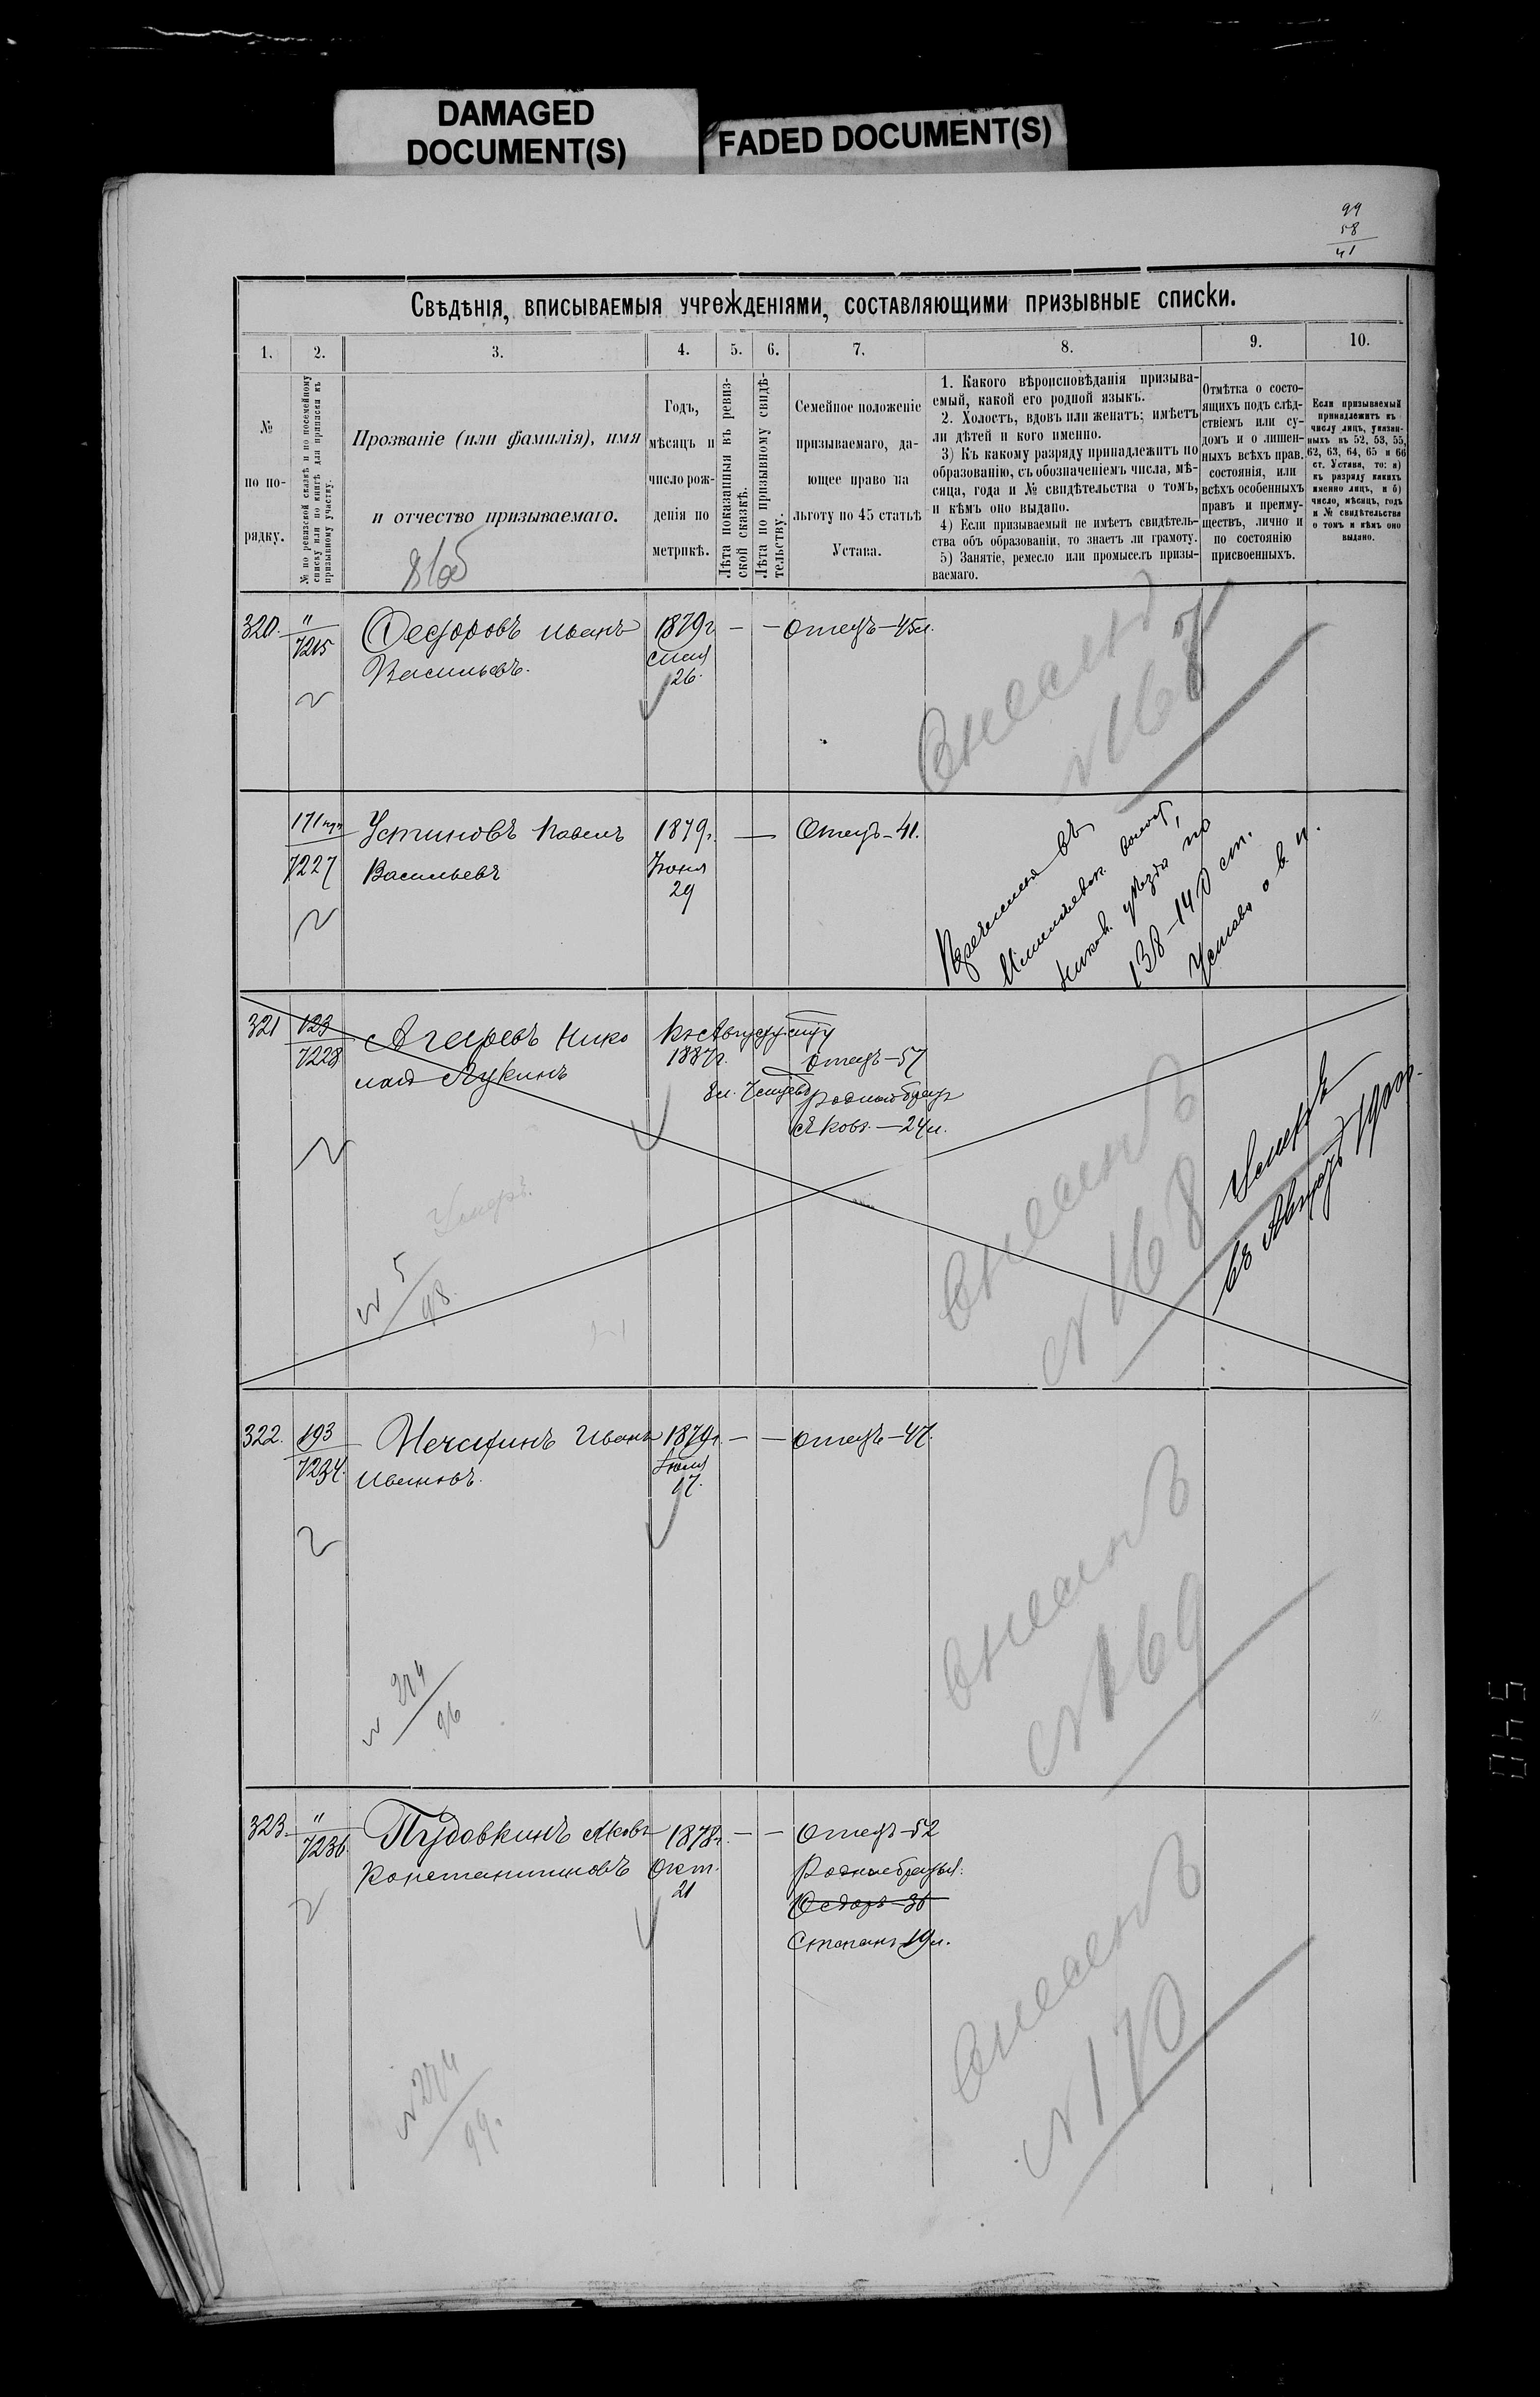 DAMAGED
DOCUMENT(S)
FADED DOCUMENT(S)
99
58
41
Свѣдѣнія, вписываемыя учрежденіями, составляющими призывные списки.
1. 2. 3. 4. 5. 6. 7. 8. 9. 10.
№
по по-
рядку.
№ по ревизской сказкѣ и по посемейному
списку или по книгѣ для приписки къ
призывному участку.
Прозваніе (или фамилія), имя
и отчество призываемаго.
Годъ,
мѣсяцъ и
число рож-
денія по
метрикѣ.
Лѣта показанныя въ ревиз-
ской сказкѣ.
Лѣта по призывному свидѣ-
тельству.
Семейное положеніе
призываемаго, да-
ющее право на
льготу по 45 статьѣ
Устава.
1. Какого вѣроисповѣданія призыва-
емый, какой его родной языкъ.
2. Холостъ, вдовъ или женатъ; имѣетъ
ли дѣтей и кого именно.
3) Къ какому разряду принадлежитъ по
образованію, съ обозначеніемъ числа, мѣ-
сяца, года и № свидѣтельства о томъ,
и кѣмъ оно выдано.
4) Если призываемый не имѣетъ свидѣтель-
ства объ образованіи, то знаетъ ли грамоту.
5) Занятіе, ремесло или промыселъ призы-
ваемаго.
Отмѣтка о состо-
ящихъ подъ слѣд-
ствіемъ или су-
домъ и о лишен-
ныхъ всѣхъ прав.
состоянія, или
всѣхъ особенныхъ
правъ и преиму-
ществъ, лично и
по состоянію
присвоенныхъ.
Если призываемый
принадлежитъ къ
числу лицъ, указан-
ныхъ въ 52, 53, 55,
62, 63, 64, 65 и 66
ст. Устава, то: а)
къ разряду какихъ
именно лицъ, и б)
число, мѣсяцъ, годъ
и № свидѣтельства
о томъ и кѣмъ оно
выдано.
320. " Ѳедоровъ Иванъ 1879г — — Отецъ—45л.
7215 Васильевъ.
26.
Внесенъ
№ 167
171 Устиновъ Павелъ 1879г. — Отецъ—41.
7227 Васильевъ Іюня
29
Перечисленъ въ
уѣзда по
138–140 ст.
Устава о в. п.
321 123 Агаревъ Нико
7228 лай Лукинъ
1887г.
Къ Августу
отецъ—57
8л. 7мѣсяц. родной братъ
Яковъ.—24л.
Умеръ.
№ 5
98.
Внесенъ
№ 168
Умеръ
въ
322. 193 Нечаинъ Иванъ 1879г. — — отецъ—47.
7234. Ивановъ. Іюля
17.
№ 274
96
Внесенъ
№ 169
323. " Пудовкинъ Яковъ 1878г. — — Отецъ—52
7236 Константиновъ Окт. Родные братья:
21 Ѳедоръ—36
Степанъ 19л.
№ 274
99.
Внесенъ
№ 170
540